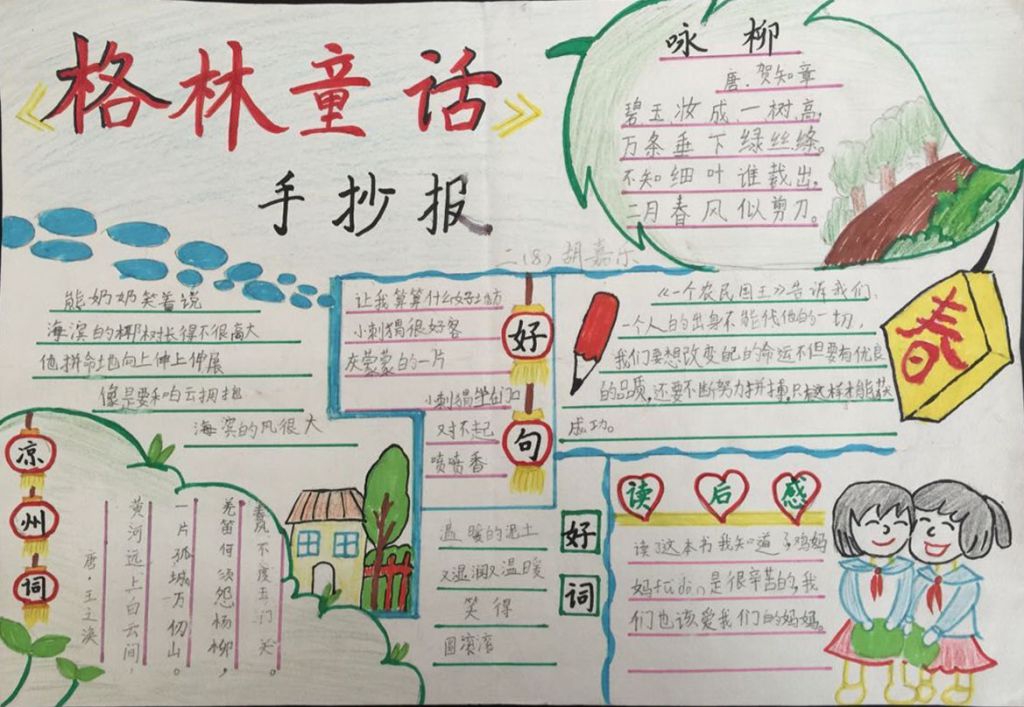 《格林童话》
手抄报
二(8)胡嘉乐
咏柳
唐.贺知章
碧玉妆成一树高,
万条垂下绿丝绦。
不知细叶谁裁出,
二月春风似剪刀。
熊奶奶笑着说
海滨的椰树长得不很高大
他拼命地向上伸上伸展
像是要和白云拥抱
海滨的风很大
让我算算什么好
小刺猬很好客
灰蒙蒙的一片
小刺猬坐在门口
对不起
喷喷香
好句
《一个农民国王》告诉我们,
一个人的出身不能代他的一切,
我们要想改变自己的命运不但要有优良
的品质,还要不断努力拼搏,只有这样才能获
成功。
春
凉州词
唐.王之涣
黄河远上白云间,
一片孤城万仞山。
羌笛何须怨杨柳,
春风不度玉门关。
温暖的泥土
又湿润又温暖
笑得
圆滚滚
好词
读后感
读了这本书我知道了鸡妈
妈是很辛苦的,我
们也该爱我们的妈妈。